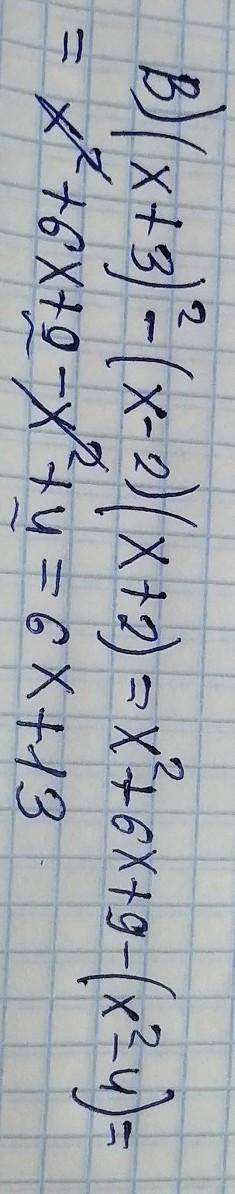 В) (x+3)² - (x-2)(x+2) = x² + 6x + 9 - (x² - 4) =
= x² + 6x + 9 - x² + 4 = 6x + 13